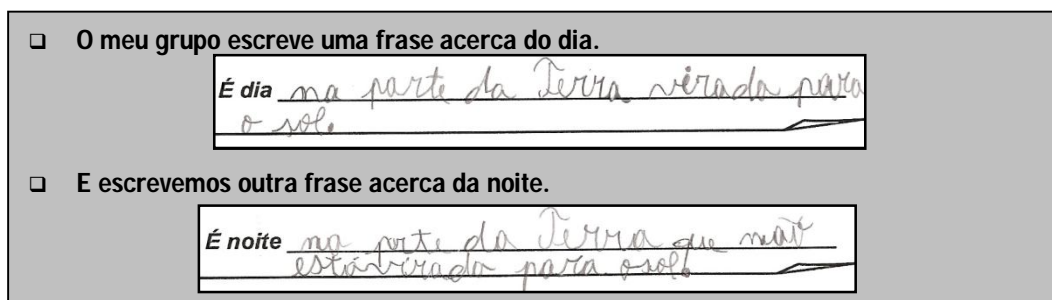 O meu grupo escreve uma frase acerca do dia.
É dia na parte da Terra virada para
o sol.
E escrevemos outra frase acerca da noite.
É noite na parte da Terra que não
está virada para o sol.